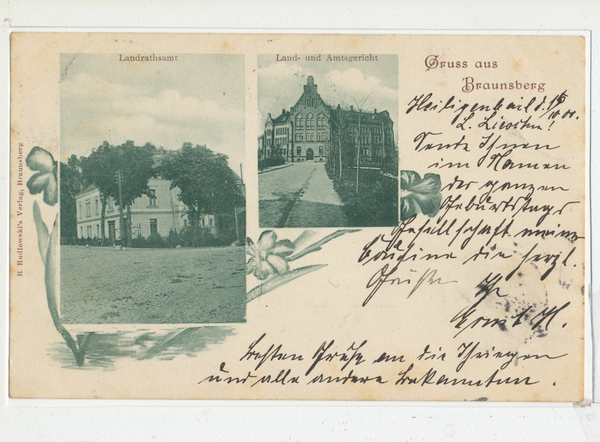 Landrathsamt
Land- und Amtsgericht
Gruss aus
Braunsberg
R. Rudlowski's Verlag, Braunsberg
Heiligenbeil d.
L.
Sende Ihnen
im Namen
der ganzen
Geburtstags
Gesellschaft meiner
Cousine die herzl.
Grüße Ihr
Ernst H.
Besten Gruß an die Ihrigen
und alle andere Bekannten.